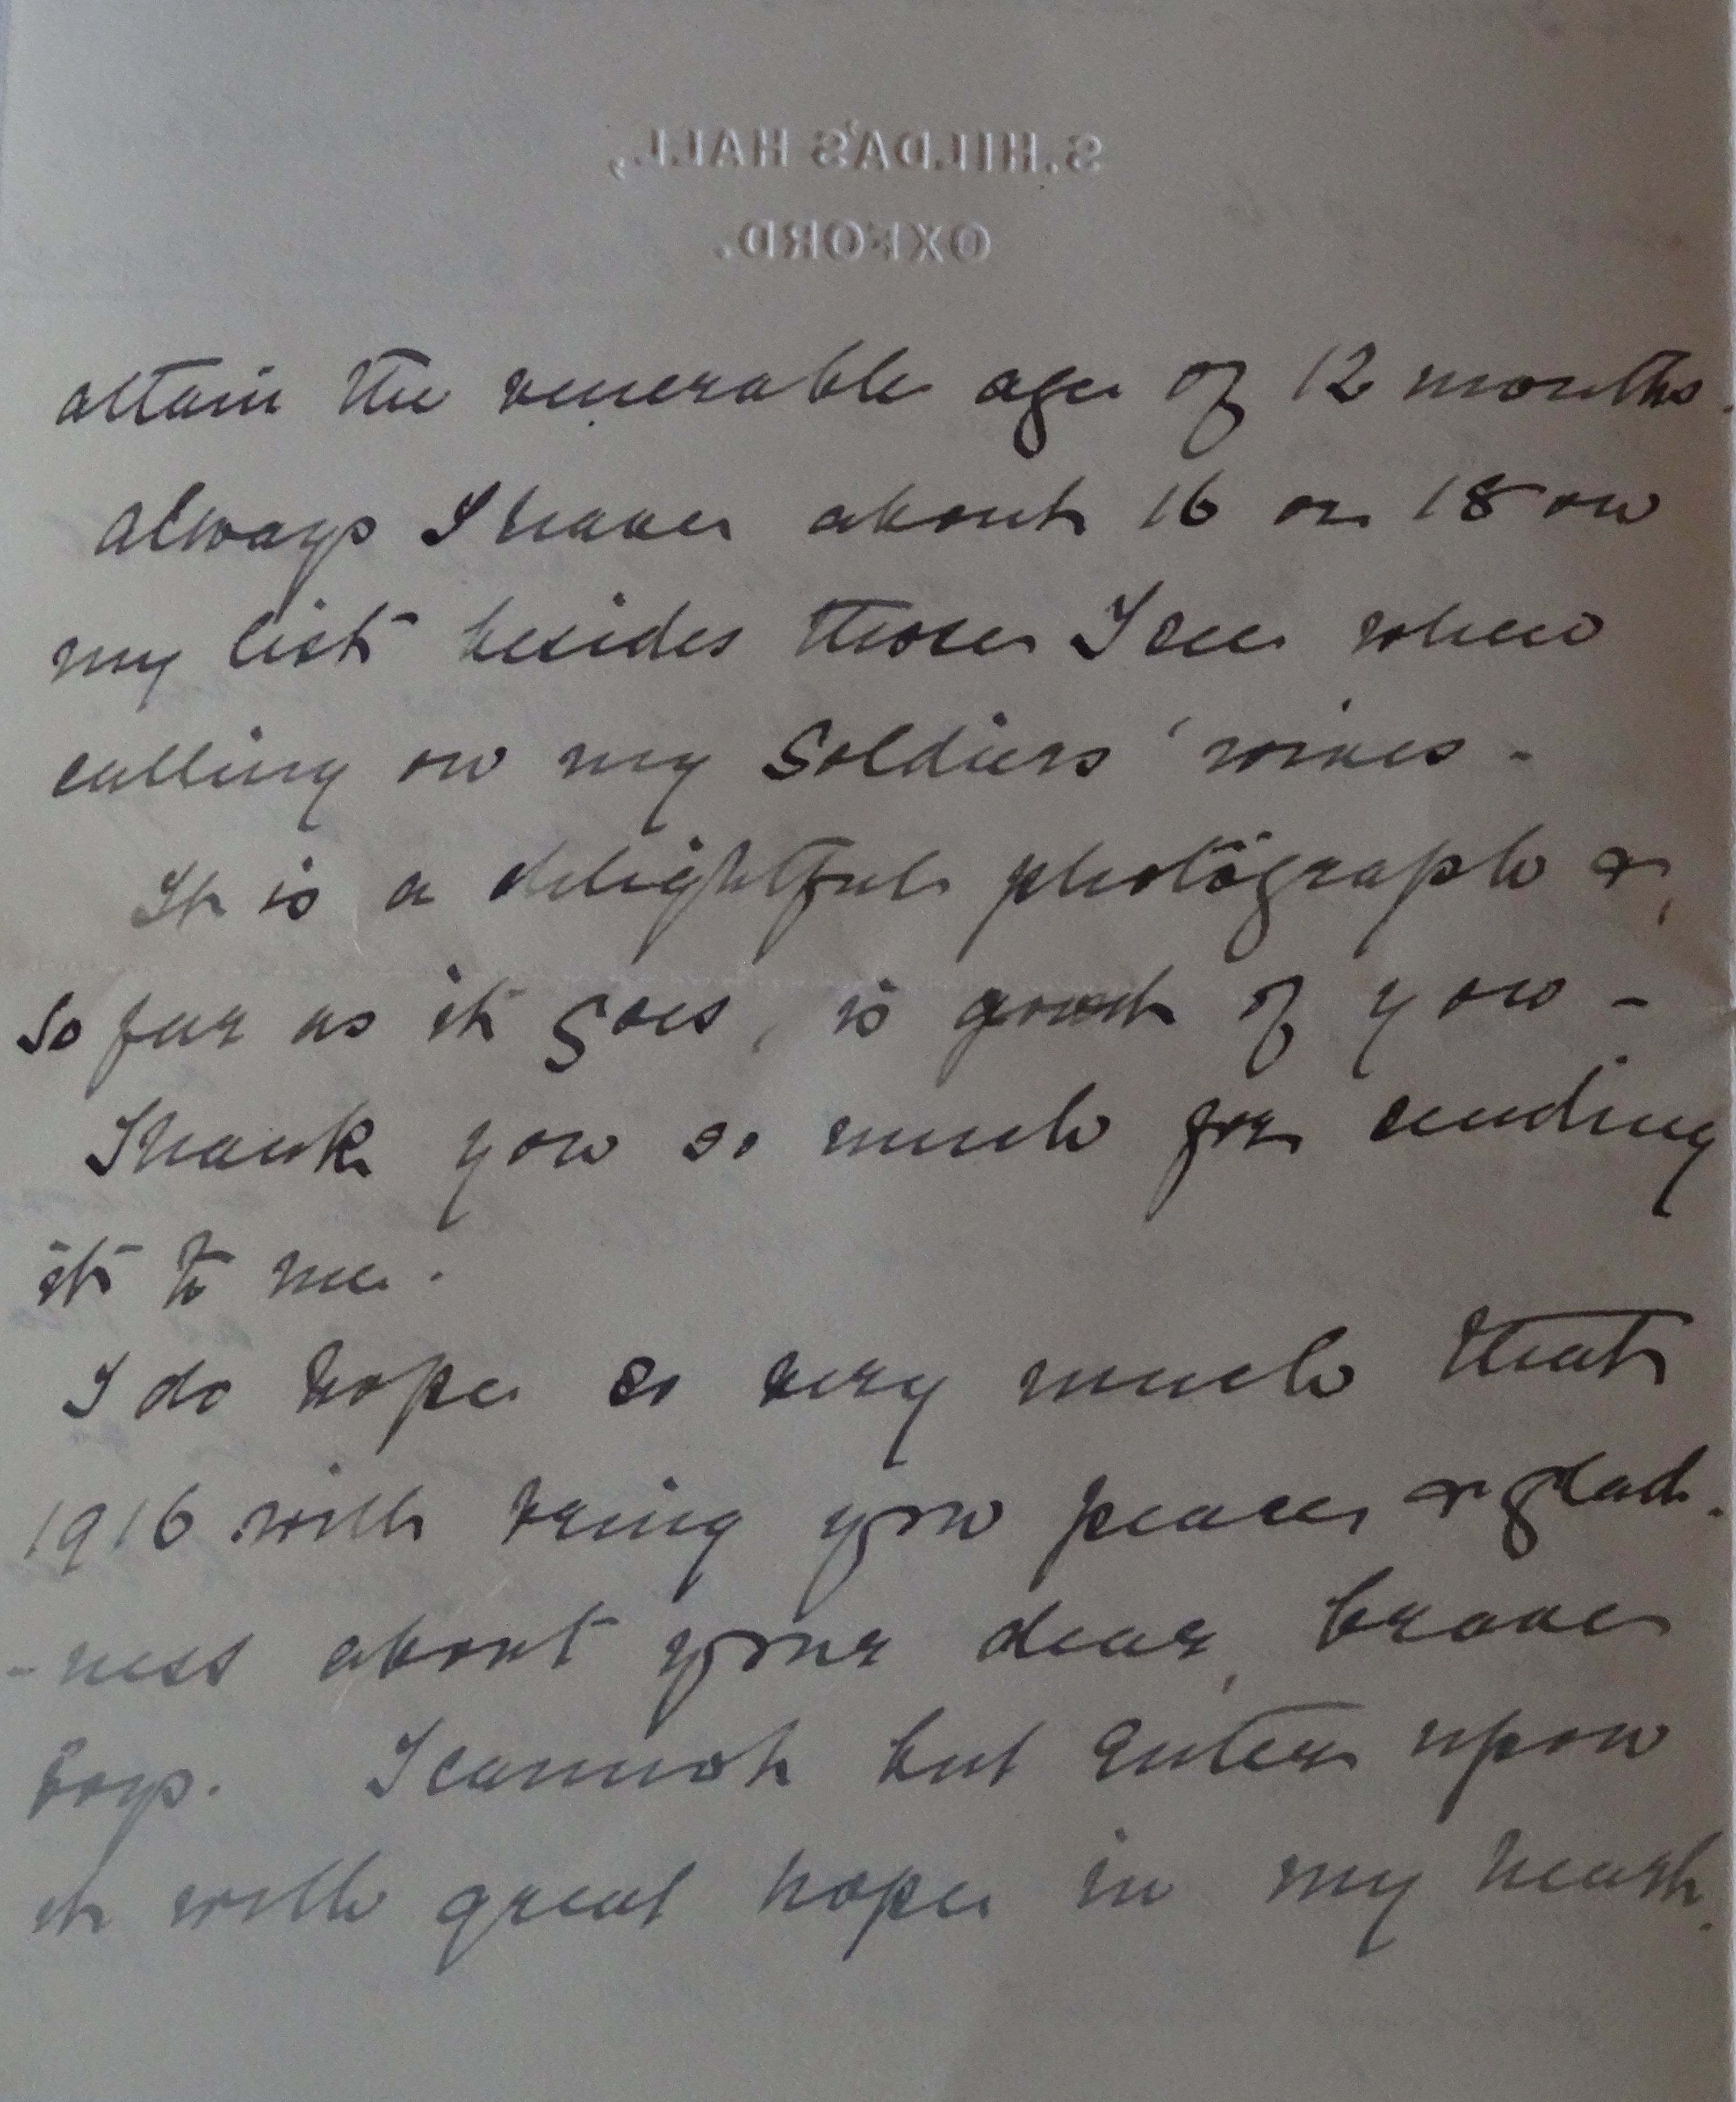 S. HILDA'S HALL,
OXFORD.
attain the venerable age of 12 months.
Always I have about 16 or 18 on
my list besides those I see when
calling on my Soldiers' wives -
It is a delightful photograph &,
so far as it goes, is good of you -
Thank you so much for sending
it to me.
I do hope so very much that
1916 will bring you peace & glad-
-ness about your dear, brave
boys. I cannot but enter upon
it with great hope in my heart.